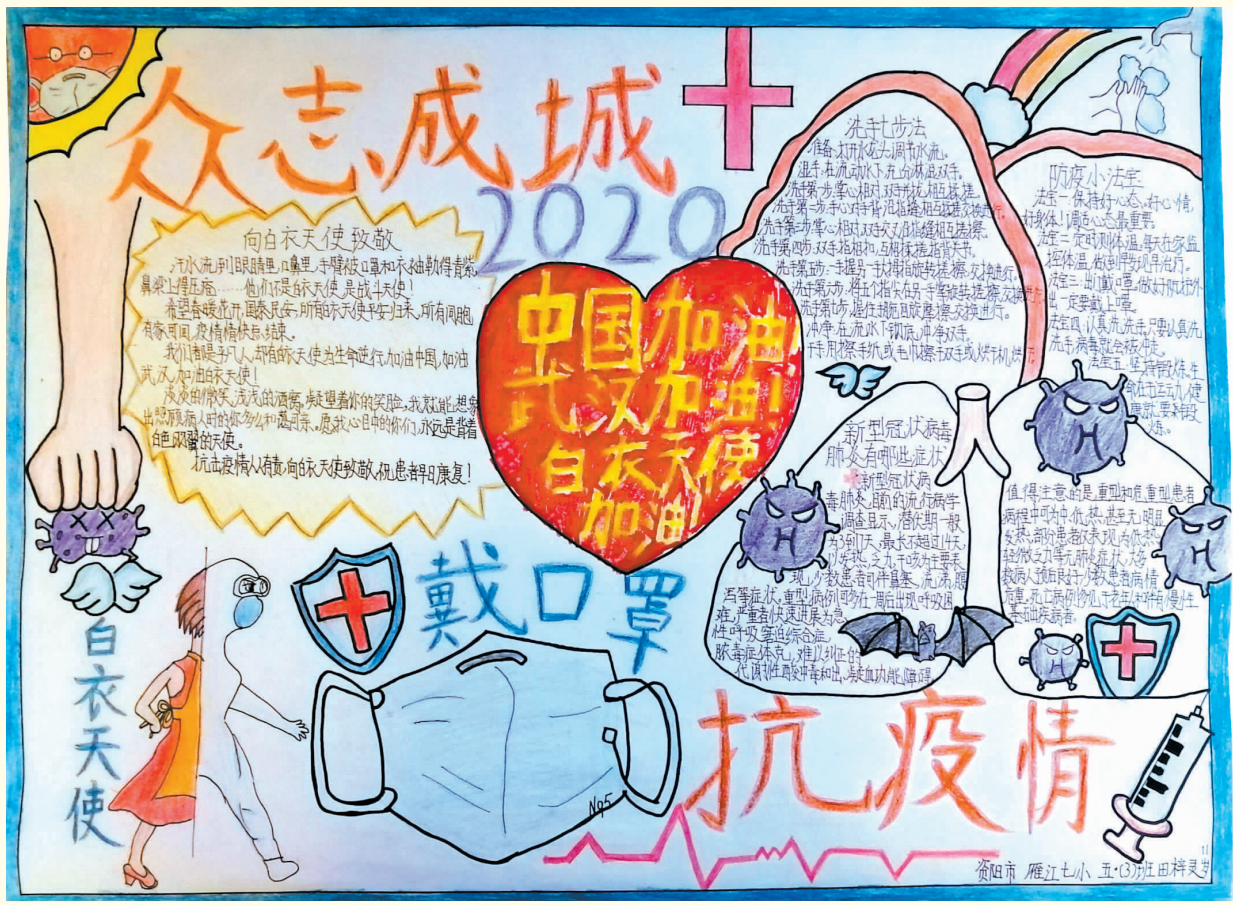 众志成城
2020
向白衣天使致敬
汗水流到眼睛里、口鼻里,手臂被口罩和衣袖勒得青紫,
鼻梁上得压疮……他们不是白衣天使,是战斗天使!
希望春暖花开,国泰民安,所有白衣天使平安归来,所有同胞
有家可回,疫情情快点结束。
我们都是子凡人,却有白衣天使为生命逆行,加油中国,加油
武汉,加油白衣天使!
淡淡的微笑,浅浅的酒窝,凝望着你的笑脸,我就能想象
出照顾病人时的你多么和蔼可亲。愿我心目中的你们,永远是背着
白色双翼的天使。
抗击疫情人人有责,向白衣天使致敬,祝患者早日康复!
中国加油
武汉加油!
白衣天使
加油!
洗手七步法
准备,打开水龙头,调节水流。
湿手,在流动水下,充分淋湿双手。
洗手第一步,掌心相对,双手并拢,相互揉搓。
洗手第二步,手心对手背沿指缝相互揉搓,交换进行。
洗手第三步,掌心相对,双手交叉沿指缝相互搓擦。
洗手第四步,双手指相扣,互相揉搓指背关节。
洗手第五步,一手握另一手大拇指旋转搓擦,交换进行。
洗手第六步,将五个指尖在另一手掌旋转搓擦,交换进行
洗手第七步,握住手腕回旋摩擦,交换进行。
冲净,在流水下彻底,冲净双手。
干手,用擦手纸或毛巾擦干双手或烘干机烘干。
防疫小法宝
法宝一:保持好心态。好心情,
好身体!调适心态最重要。
法宝二:定时测体温,每天在家监
控体温,做到早发现早治疗。
法宝三:出门戴口罩,做好防护,外
出一定要戴上口罩。
法宝四:认真洗洗手,只要认真洗
洗手,病毒就会被冲走。
法宝五:坚持常锻炼,生
命在于运动,健
康就要多锻
炼。
新型冠状病毒
肺炎有哪些症状
新型冠状病
毒肺炎,目前的流行病学
调查显示,潜伏期一般
为3到7天,最长不超过14天,
以发热、乏力、干咳为主要表
现。少数患者可伴鼻塞、流涕、腹
泻等症状,重型病例可多在一周后出现呼吸困
难,严重者快速进展为急
性呼吸窘迫综合症、
脓毒症休克、难以纠正的
代谢性酸中毒和出、凝血功能障碍。
值得注意的是,重型和危重型患者
病程中可为中、低热,甚至无明显
发热,部分患者仅表现为低热、
轻微乏力等无肺炎症状,大多
数病人预后良好,少数患者病情
危重,死亡病例多见于老年人和伴有慢性
基础疾病者。
戴口罩
N95
白衣天使
抗疫情
资阳市 雁江七小 五·(3)班 田梓灵 11岁